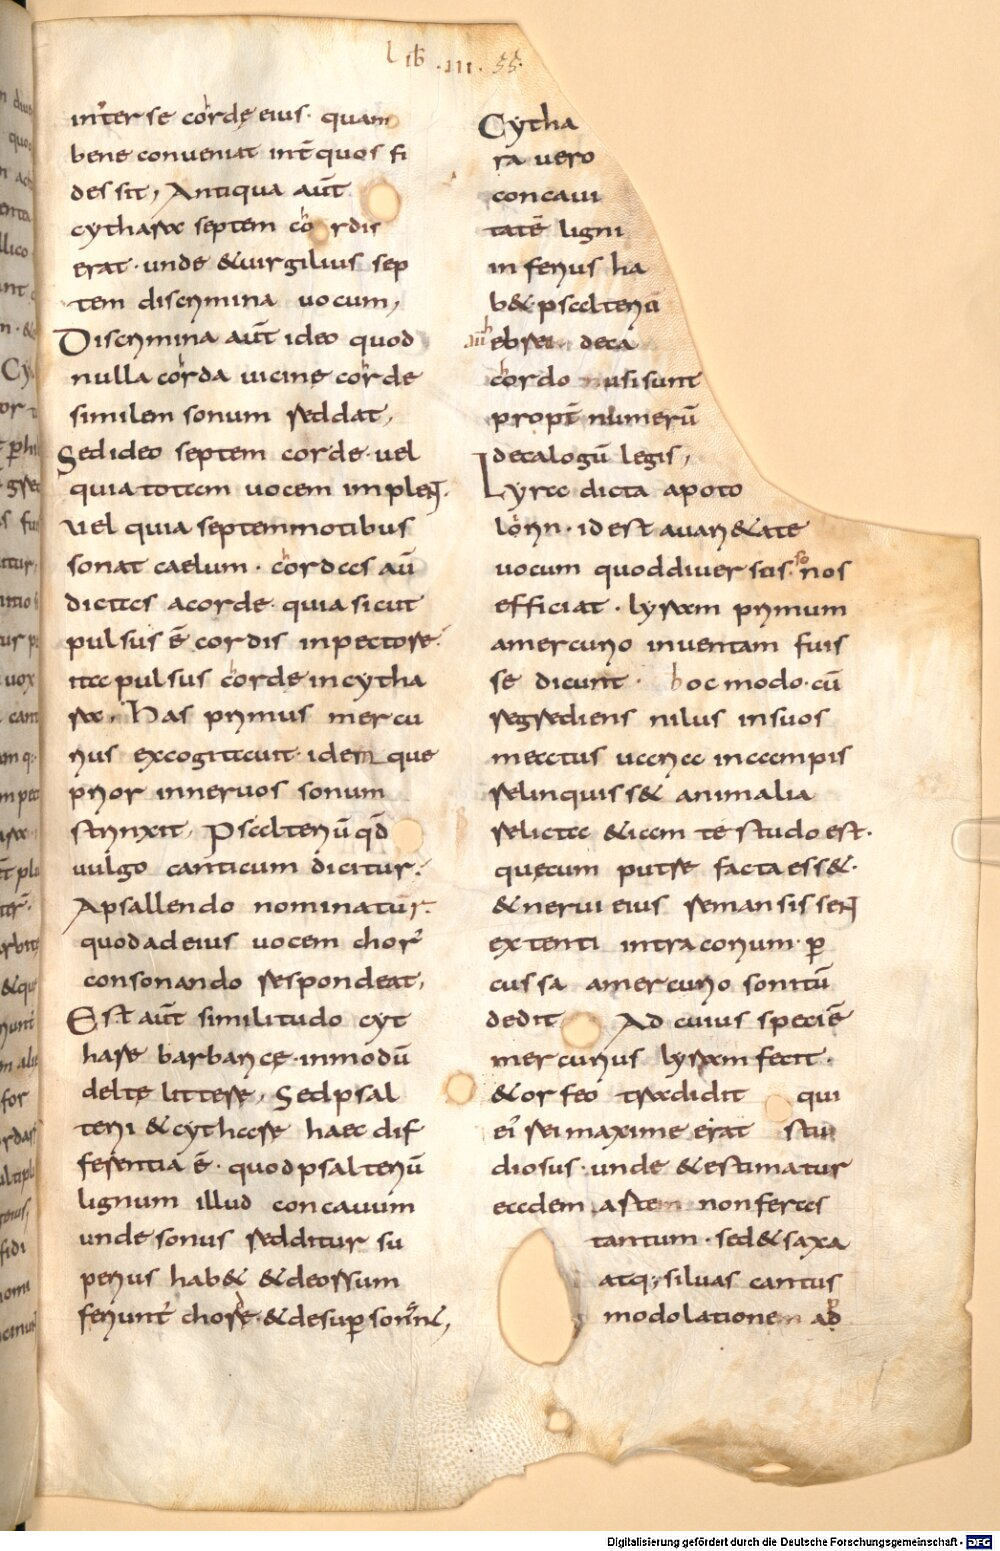 Lib .III. 55.
int̄er se cordę eius· quam
bene conveniat int̄ quos fi
des sit, Antiqua aut̄
cytharae septem cordis
erat· unde & uirgilius sep
tem discrimina uocum,
Discrimina aut̄ ideo quod
nulla corda uicinę corde
similem sonum reddat,
Sed ideo septem corde· uel
quia totam uocem impleń·
Vel quia septem motibus
sonat caelum· cordas aū
dictas a corde· quia sicut
pulsus ē cordis in pectore·
ita pulsus corde in cytha
ra, Has primus mercu
rius excogitauit· idemque
prior in nervos sonum
strinxit, Psalteriū qd̄
vulgo canticum dicitur·
A psallendo nominatur·
quod ad eius vocem chor'
consonando respondeat,
Est aut̄ similitudo cyt
hare barbaricę· in modū
deltę littere, Sed psal
terii & cythare haec dif
ferentia ē· quod psalteriū
lignum illud concauum
unde sonus redditur su
perius hab& & deorsum
feriunt' chore· & desup̄ sonan̄,
Cytha
ra uero
concaui
tatē ligni
inferius ha
b& psalteriū
aū ebrei deca
cordo usi sunt
propt̄ numerū
decalogū legis,
Lyra dicta apo to
lórin· id est a uari&ate
vocum quod diuersas sonos
efficiat· lyram primum
a mercurio inventam fuis
se dicunt· hoc modo· cū
regrediens nilus in suos
meatus uaria in campis
reliquiss& animalia
relicta & iam testudo est·
quęcum putre facta ess&·
& nervi eius remansissen̄
extenti intra corium· p̄
cussa a mercurio sonitū
dedit Ad cuius speciē
mercurius lyram fecit·
& orfeo tradidit qui
ei' rei maxime erat stu
diosus· unde & estimatur
eadem artem non feras
tantum· sed & saxa
atq; siluas cantus
modolatione ab
Digitalisierung gefördert durch die Deutsche Forschungsgemeinschaft - DFG